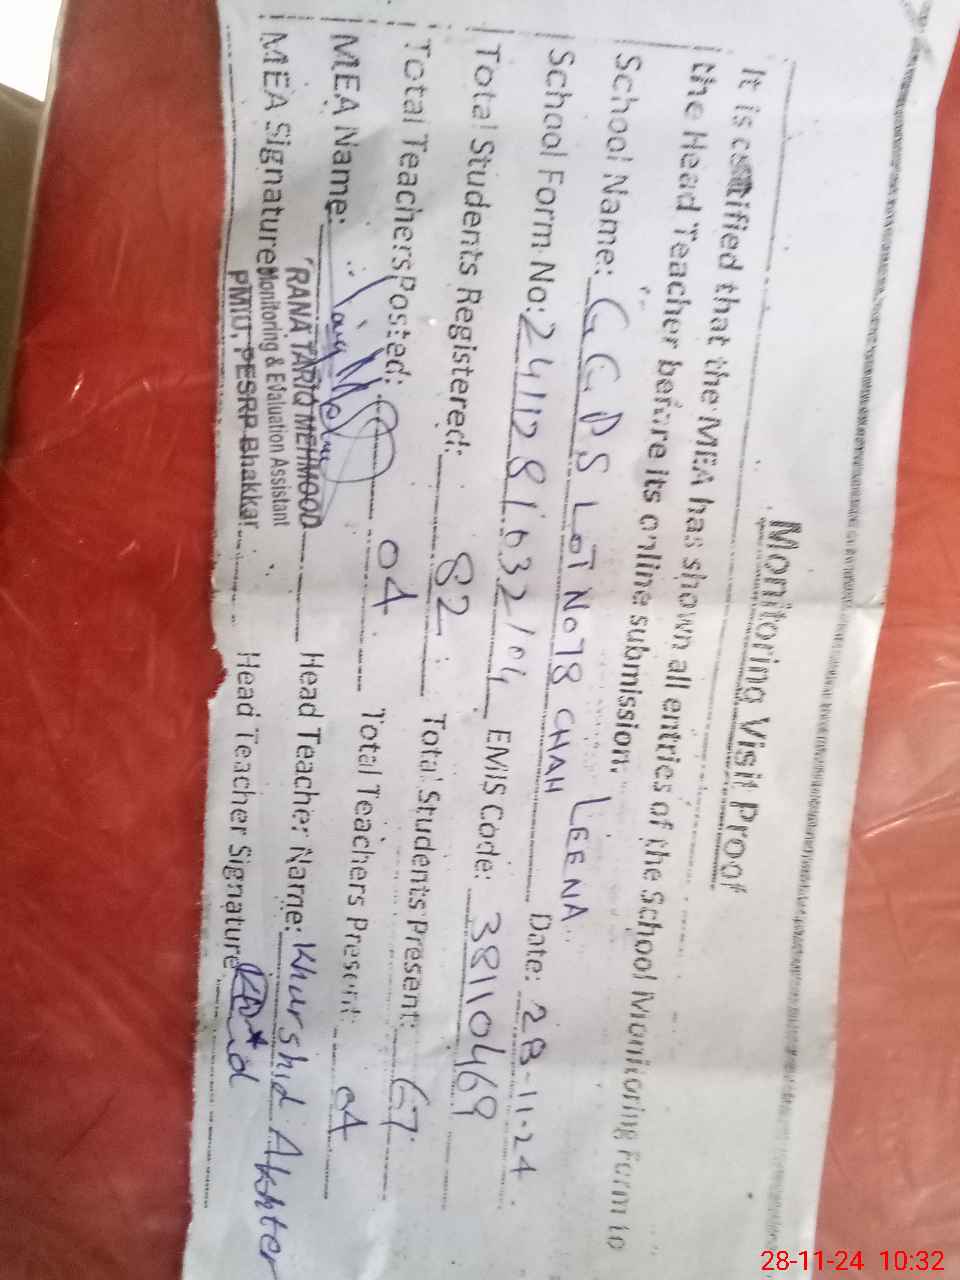 Monitoring Visit Proof
It is certified that the MEA has shown all entries of the School Monitoring Form to
the Head Teacher before its online submission.
School Name: GGPS LOT No 78 CHAH LEENA Date: 28-11-24
School Form No: EMIS Code: 38110469
Total Students Registered: 82 Total Students Present: 67
Total Teachers Posted: 04 Total Teachers Present: 04
MEA Name: RANA TARIQ MEHMOOD Head Teacher Name: Khurshid Akhter
MEA Signature Monitoring & Evaluation Assistant Head Teacher Signature
PMIU, PESRP Bhakkar
28-11-24 10:32